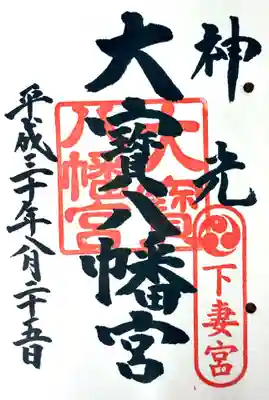 神光
大寶八幡宮
平成三十年八月二十五日
大寶
八幡宮
下妻宮